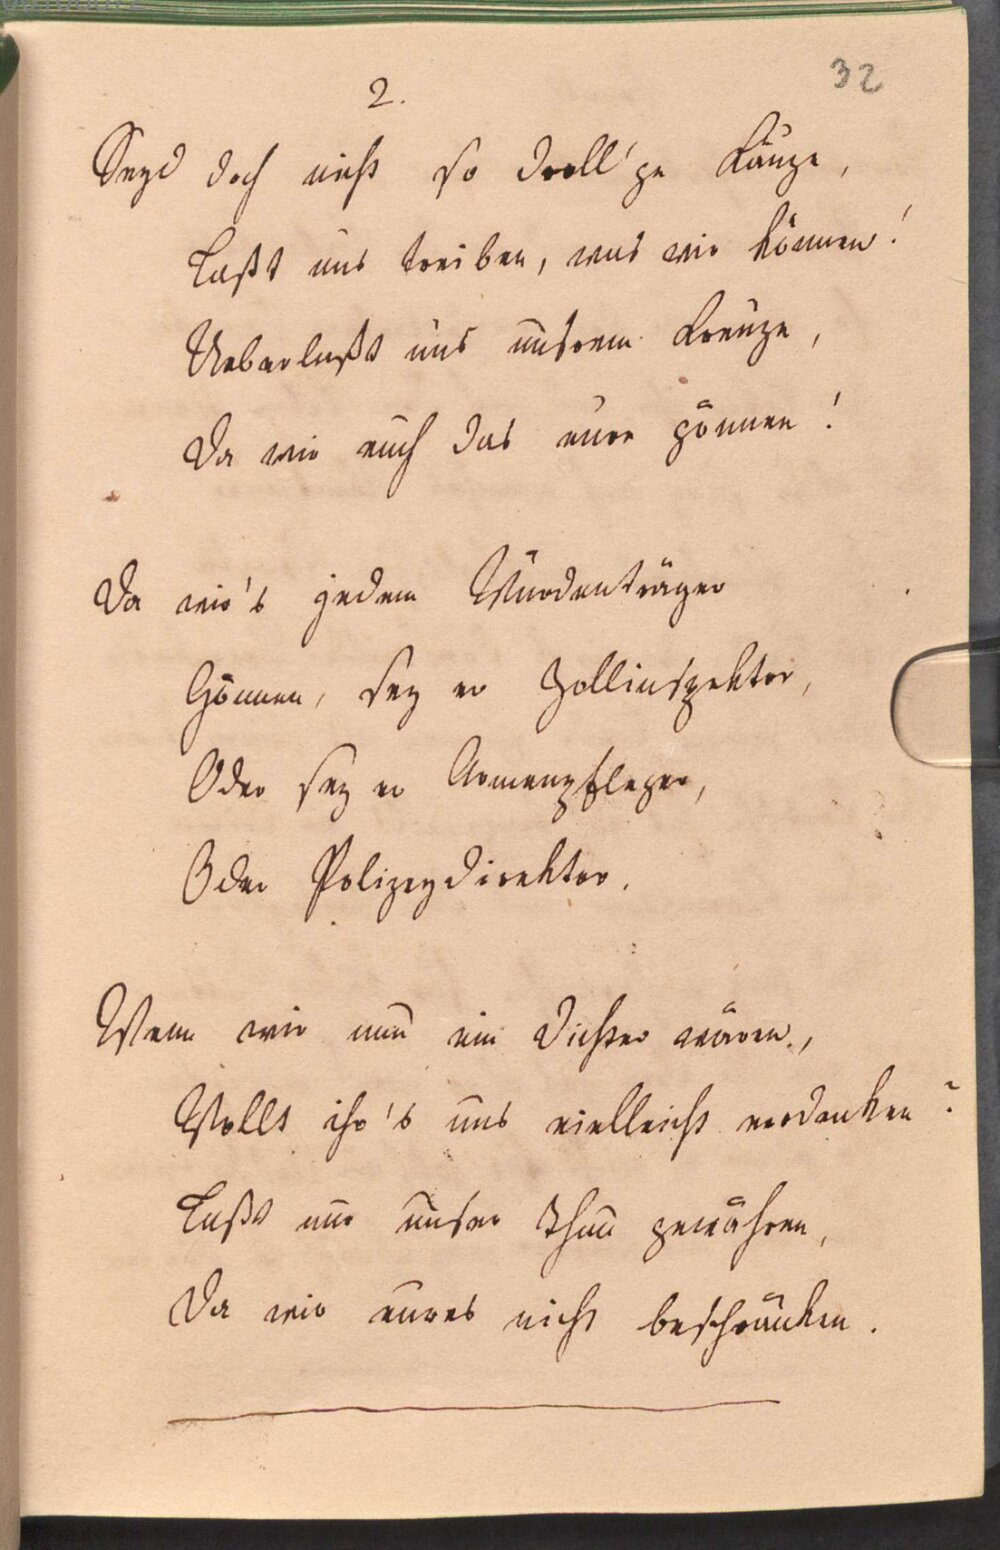 32
2.
Seyd doch nicht so droll'ge Käuze,
Laßt uns treiben, was wir können!
Ueberlaßt uns unsrem Kreuze,
Da wir euch das eure gönnen!
Da wir's jedem Würdenträger
Gönnen, sey er Zollinspektor,
Oder sey er Armenpfleger,
Oder Polizeydirektor.
Wenn wir nun ein Dichter wären,
Wollt ihr's uns vielleicht verdenken?
Laßt nur unser Thun gewähren,
Da wir eures nicht beschränken.